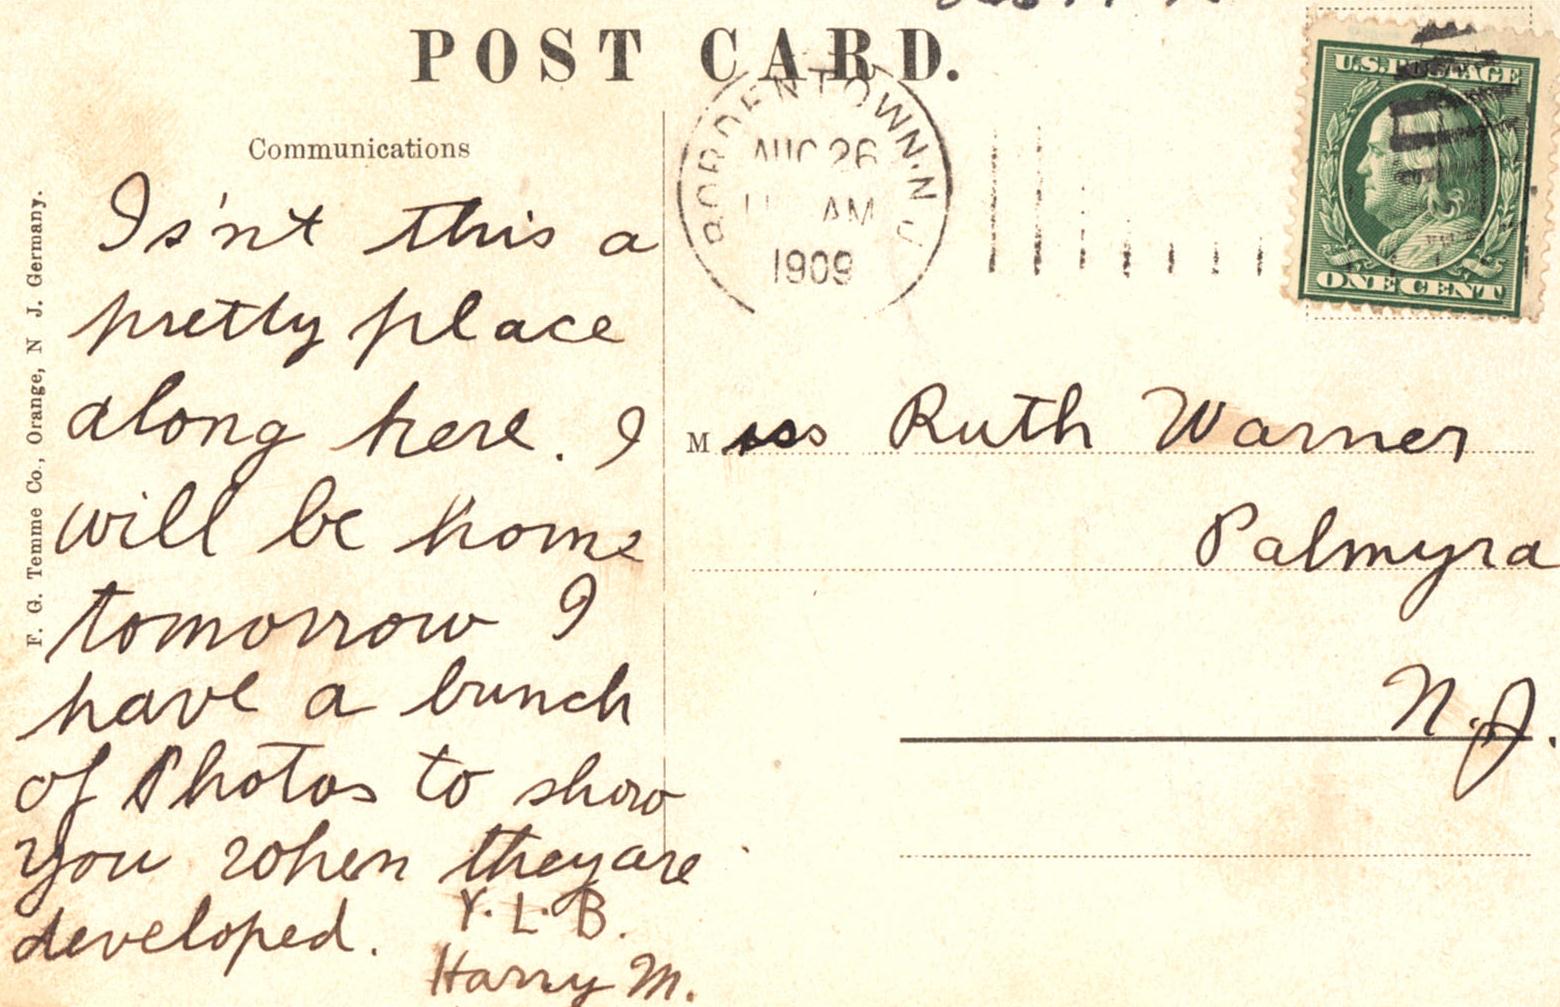 POST CARD.
Communications
Is'nt this a
pretty place
along here. I
will be home
tomorrow I
have a bunch
of Photos to show
you when they are
developed.
Y. L. B.
Harry M.
F. G. Temme Co., Orange, N J. Germany.
BORDENTOWN. N J
AUG 26
AM
1909
U.S. POSTAGE
ONE CENT
Miss Ruth Warner
Palmyra
N.J.